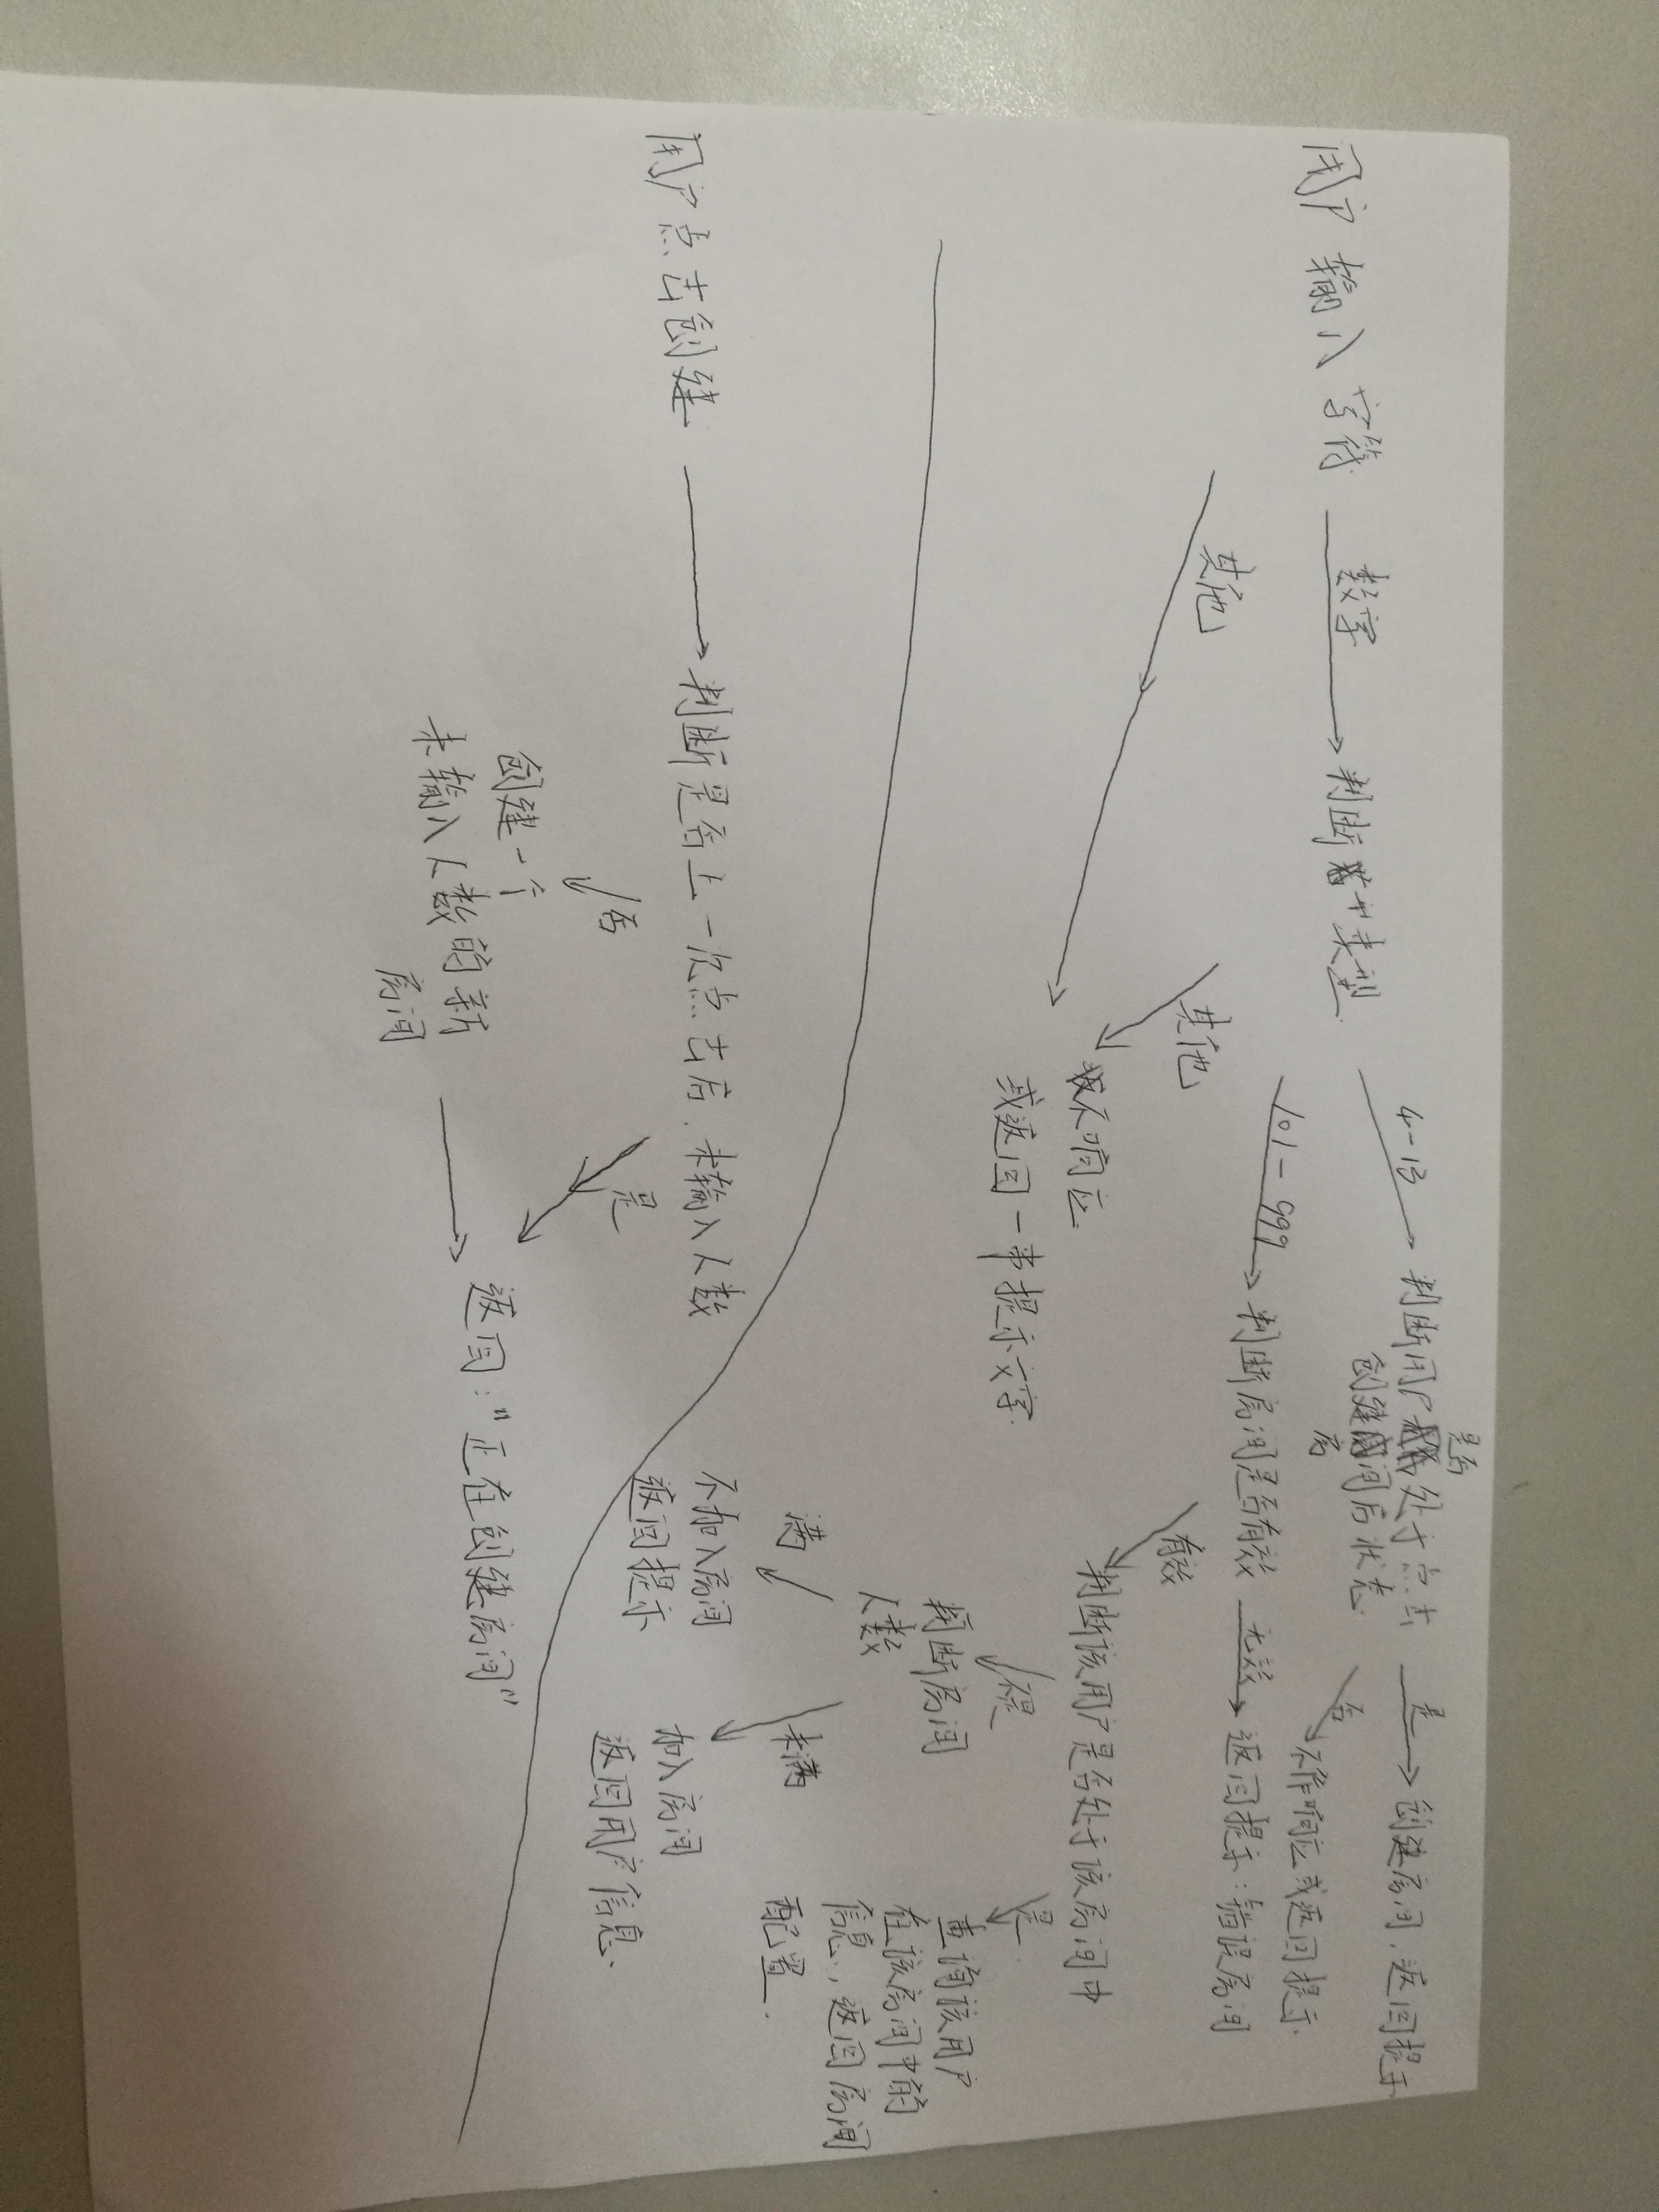 用户输入字符
数字
判断 类型
4-13
判断用户是否处于点击
创建房间后状态
是
创建房间,返回提示
否
不作响应或返回提示.
101-999
判断房间是否有效
无效
返回提示:错误房间
有效
判断该用户是否处于该房间中
是
查询该用户
在该房间中的
信息,返回房间
配置.
判断房间
人数
满
不加入房间
返回提示
未满
加入房间
返回用户信息.
其他
其他
不响应
或返回一串提示文字.
用户点击创建
判断是否上一次点击后,未输入人数
否
创建一个
未输入人数的新
房间
是
返回:"正在创建房间"